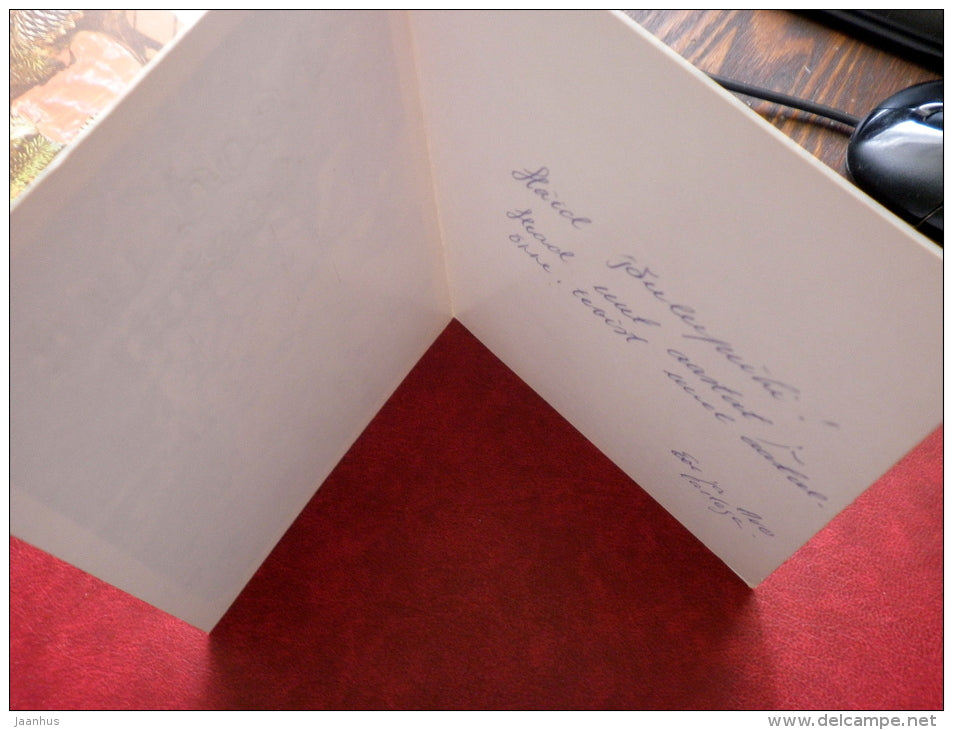 Häid Jõulupühi!
Head uut aastat ja
õnne. uuel aastal.
ja
jaanhus
www.delcampe.net